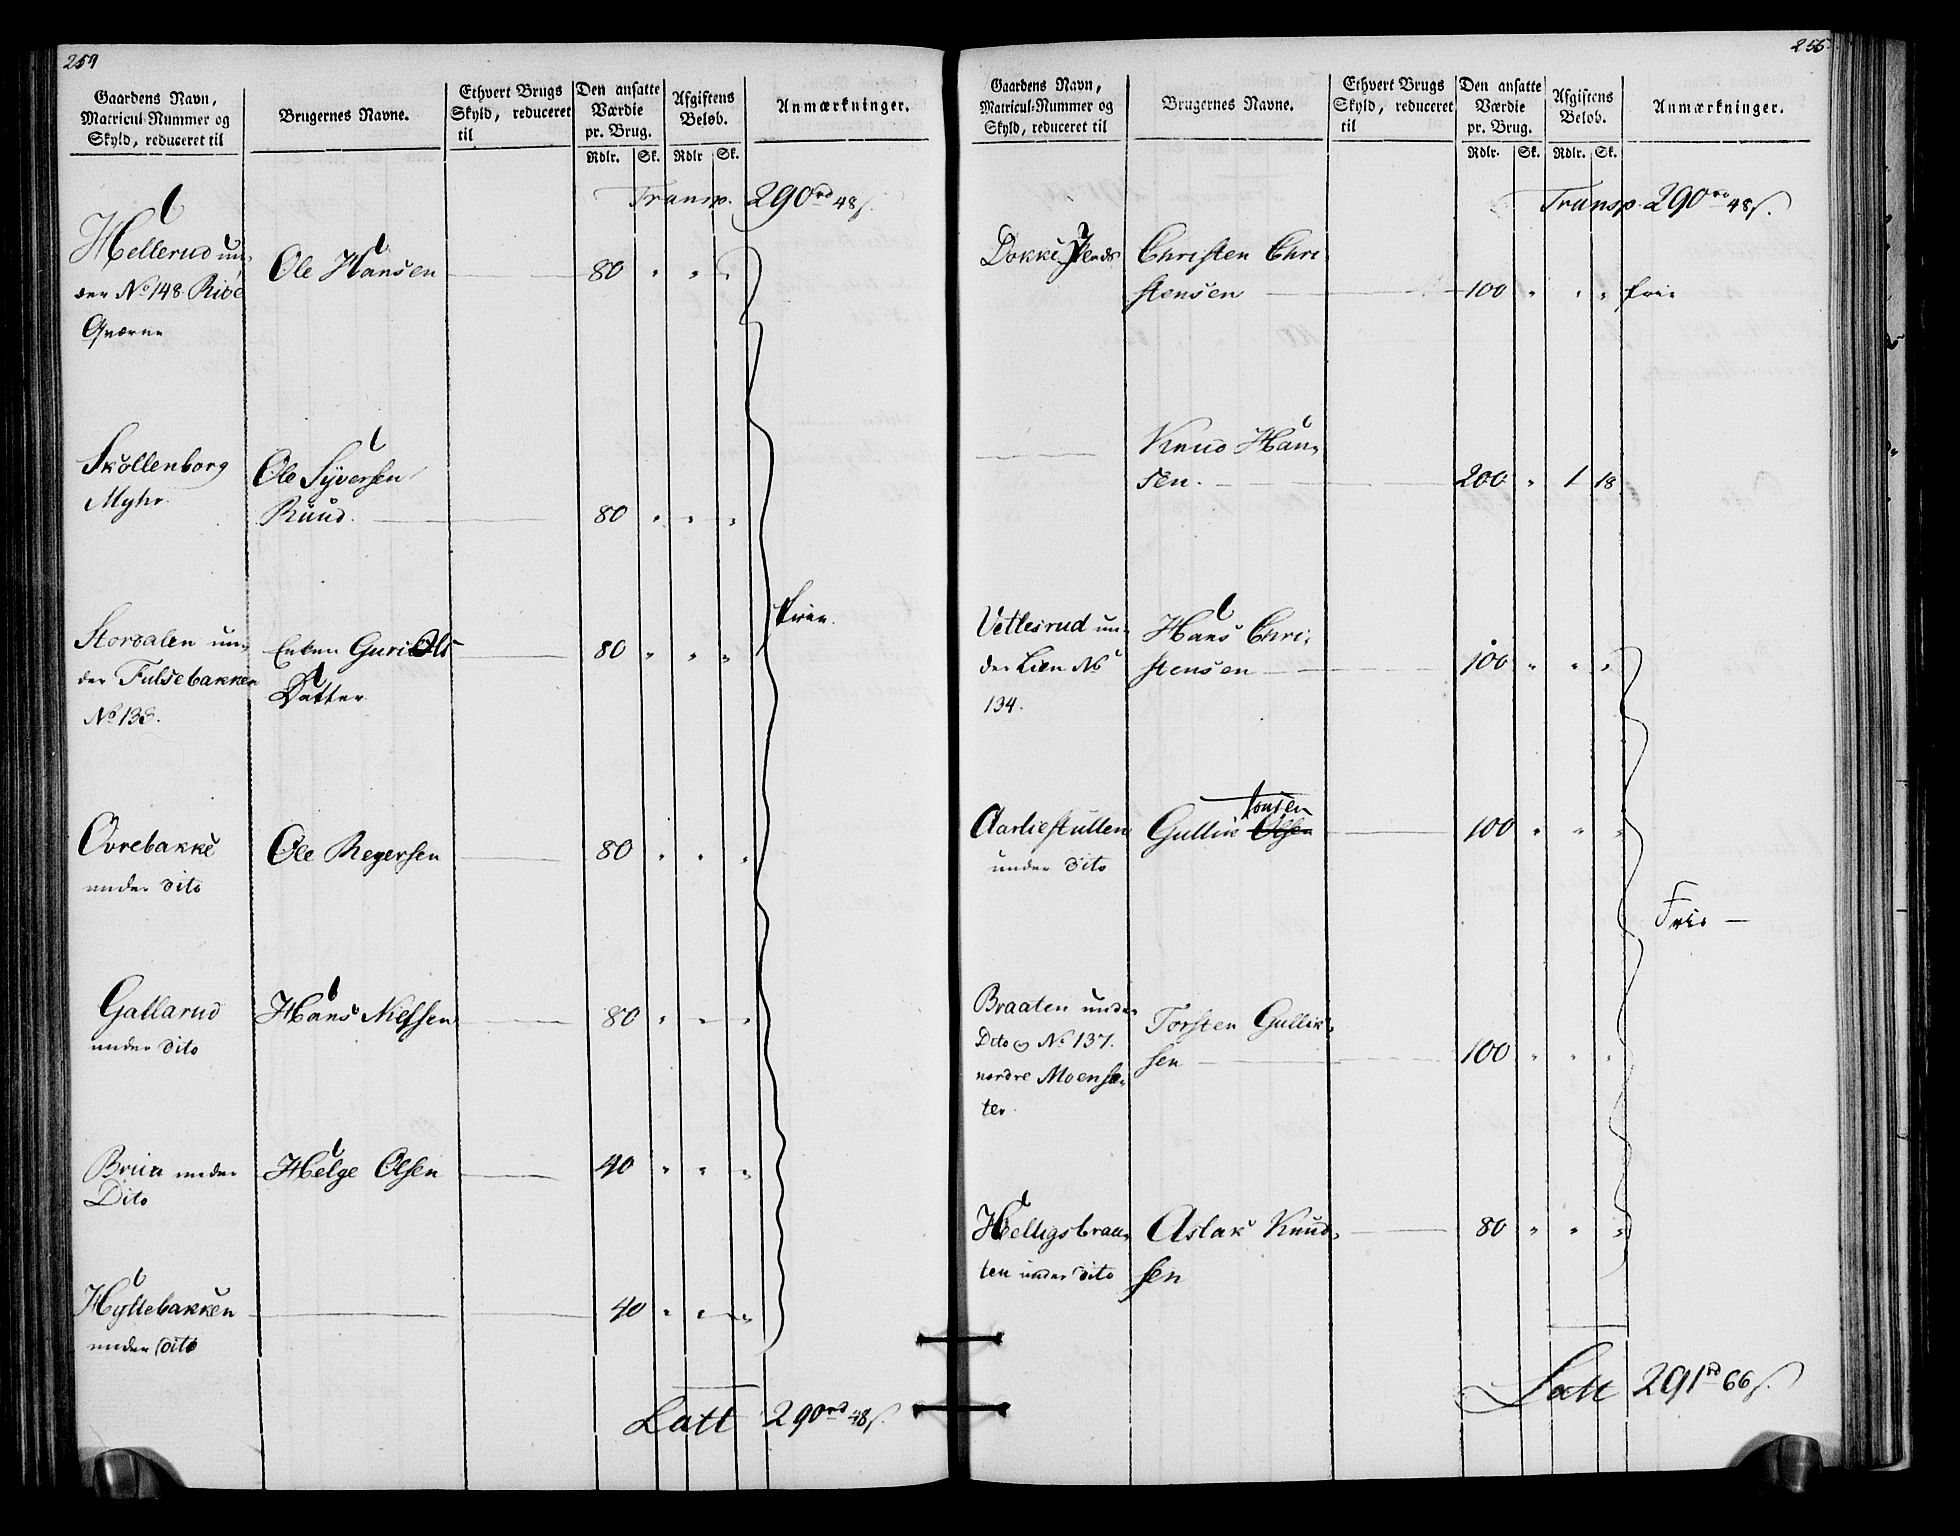 254
Gaardens Navn,
Matricul-Nummer og
Skyld, reduceret til
Brugernes Navne.
Ethvert Brugs
Skyld, reduceret
til
Den ansatte
Værdie
pr. Brug.
Rdlr. Sk.
Afgiftens
Beløb.
Rdlr Sk.
Anmærkninger.
Transp. 290rd 48s.
Hellerud un-
der No 148
Qværne
Ole Hansen 80 " "
Skollenborg
Myhr
Ole Syversen
Ruud. 80 " " "
Stordalen un-
der Fulsebakken
No 138.
Enken Guri Ols
Datter
80 " " "
frie.
Ovrebakke
under dito
Ole Regersen 80 " " "
Gallarud
under dito
Hans Nilssen 80 " " "
Brua under
Dito
Helge Olsen 40 " " "
Hyttebakken
under dito
40 " " "
Latt 290rd 48s.
255
Gaardens Navn,
Matricul-Nummer og
Skyld, reduceret til
Brugernes Navne.
Ethvert Brugs
Skyld, reduceret
til
Den ansatte
Værdie
pr. Brug.
Rdlr. Sk.
Afgiftens
Beløb.
Rdlr. Sk.
Anmærkninger.
Transp. 290rd 48s.
Dokke
Christen Chri
stensen 100 " " " frie
Knud Han-
sen. 200 " 1 18
Vetlesrud un-
der Lien No
134.
Hans Chri-
stensen 100 " " "
Aarliestullen
under dito
Gullik Olsen
Tonsen
100 " " "
Frie
Braaten under
Dito og No 137.
nordre Moensæ-
ter.
Torsten Gullik-
sen 100 " " "
Helligsbraa-
ten under dito
Aslak Knud-
sen
80 " " "
Latt 291rd 66s.